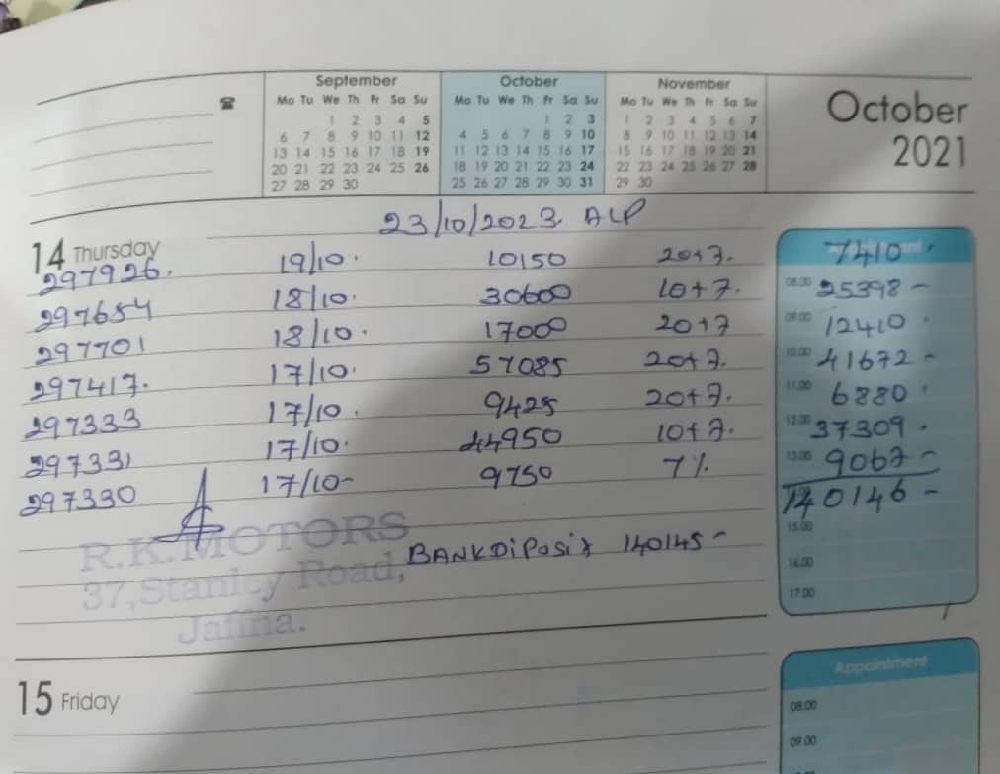 September October November
Mo Tu We Th Fr Sa Su Mo Tu We Th Fr Sa Su Mo Tu We Th Fr Sa Su
1 2 3 4 5 1 2 3 1 2 3 4 5 6 7
6 7 8 9 10 11 12 4 5 6 7 8 9 10 8 9 10 11 12 13 14
13 14 15 16 17 18 19 11 12 13 14 15 16 17 15 16 17 18 19 20 21
20 21 22 23 24 25 26 18 19 20 21 22 23 24 22 23 24 25 26 27 28
27 28 29 30 25 26 27 28 29 30 31 29 30
October
2021
23/10/2023. ALP
14 Thursday
297926. 19/10. 10150 20+7. 7410.
297654 18/10. 30600 10+7. 08.00 25398-
297701 18/10. 17000 20+7 09.00 12410.
297417. 17/10. 57085 20+7. 10.00 41672-
297333 17/10. 9425 20+7. 11.00 6880.
297331 17/10. 44950 10+7. 12.00 37309.
297330 17/10- 9750 7% 13.00 9067-
140146-
15.00
R.K.MOTORS
BANK DiPosit 140145-
37,Stanley Road,
16.00
Jaffna.
17.00
15 Friday
Appointment
08.00
09.00